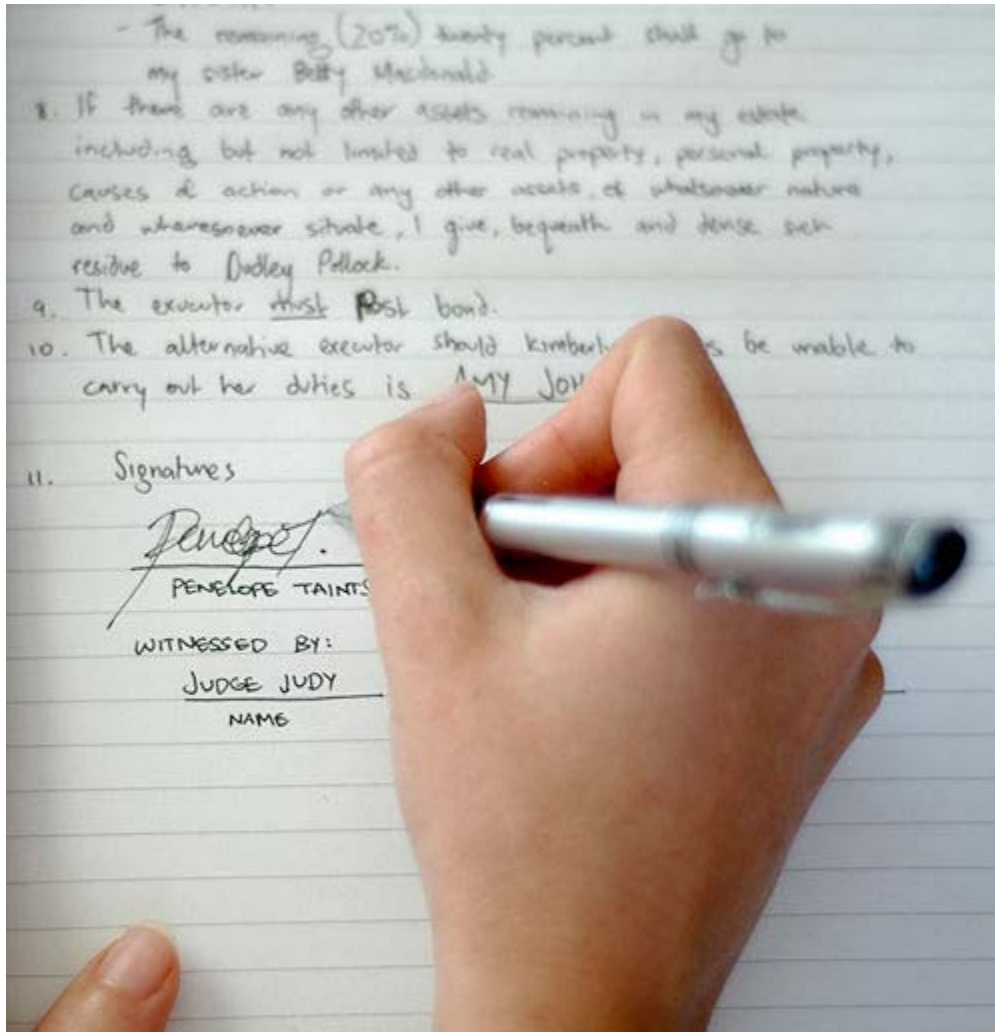 - The remaining (20%) twenty percent shall go to
my sister Betty Macdonald
8. If there are any other assets remaining in my estate
including but not limited to real property, personal property,
causes of action or any other assets, of whatsoever nature
and wheresoever situate, I give, bequeath and devise such
residue to Dudley Pollock.
9. The executor must post bond.
10. The alternative executor should Kimberly be unable to
carry out her duties is AMY
11. Signatures
Penelope T.
PENELOPE TAINTS
WITNESSED BY:
JUDGE JUDY
NAME